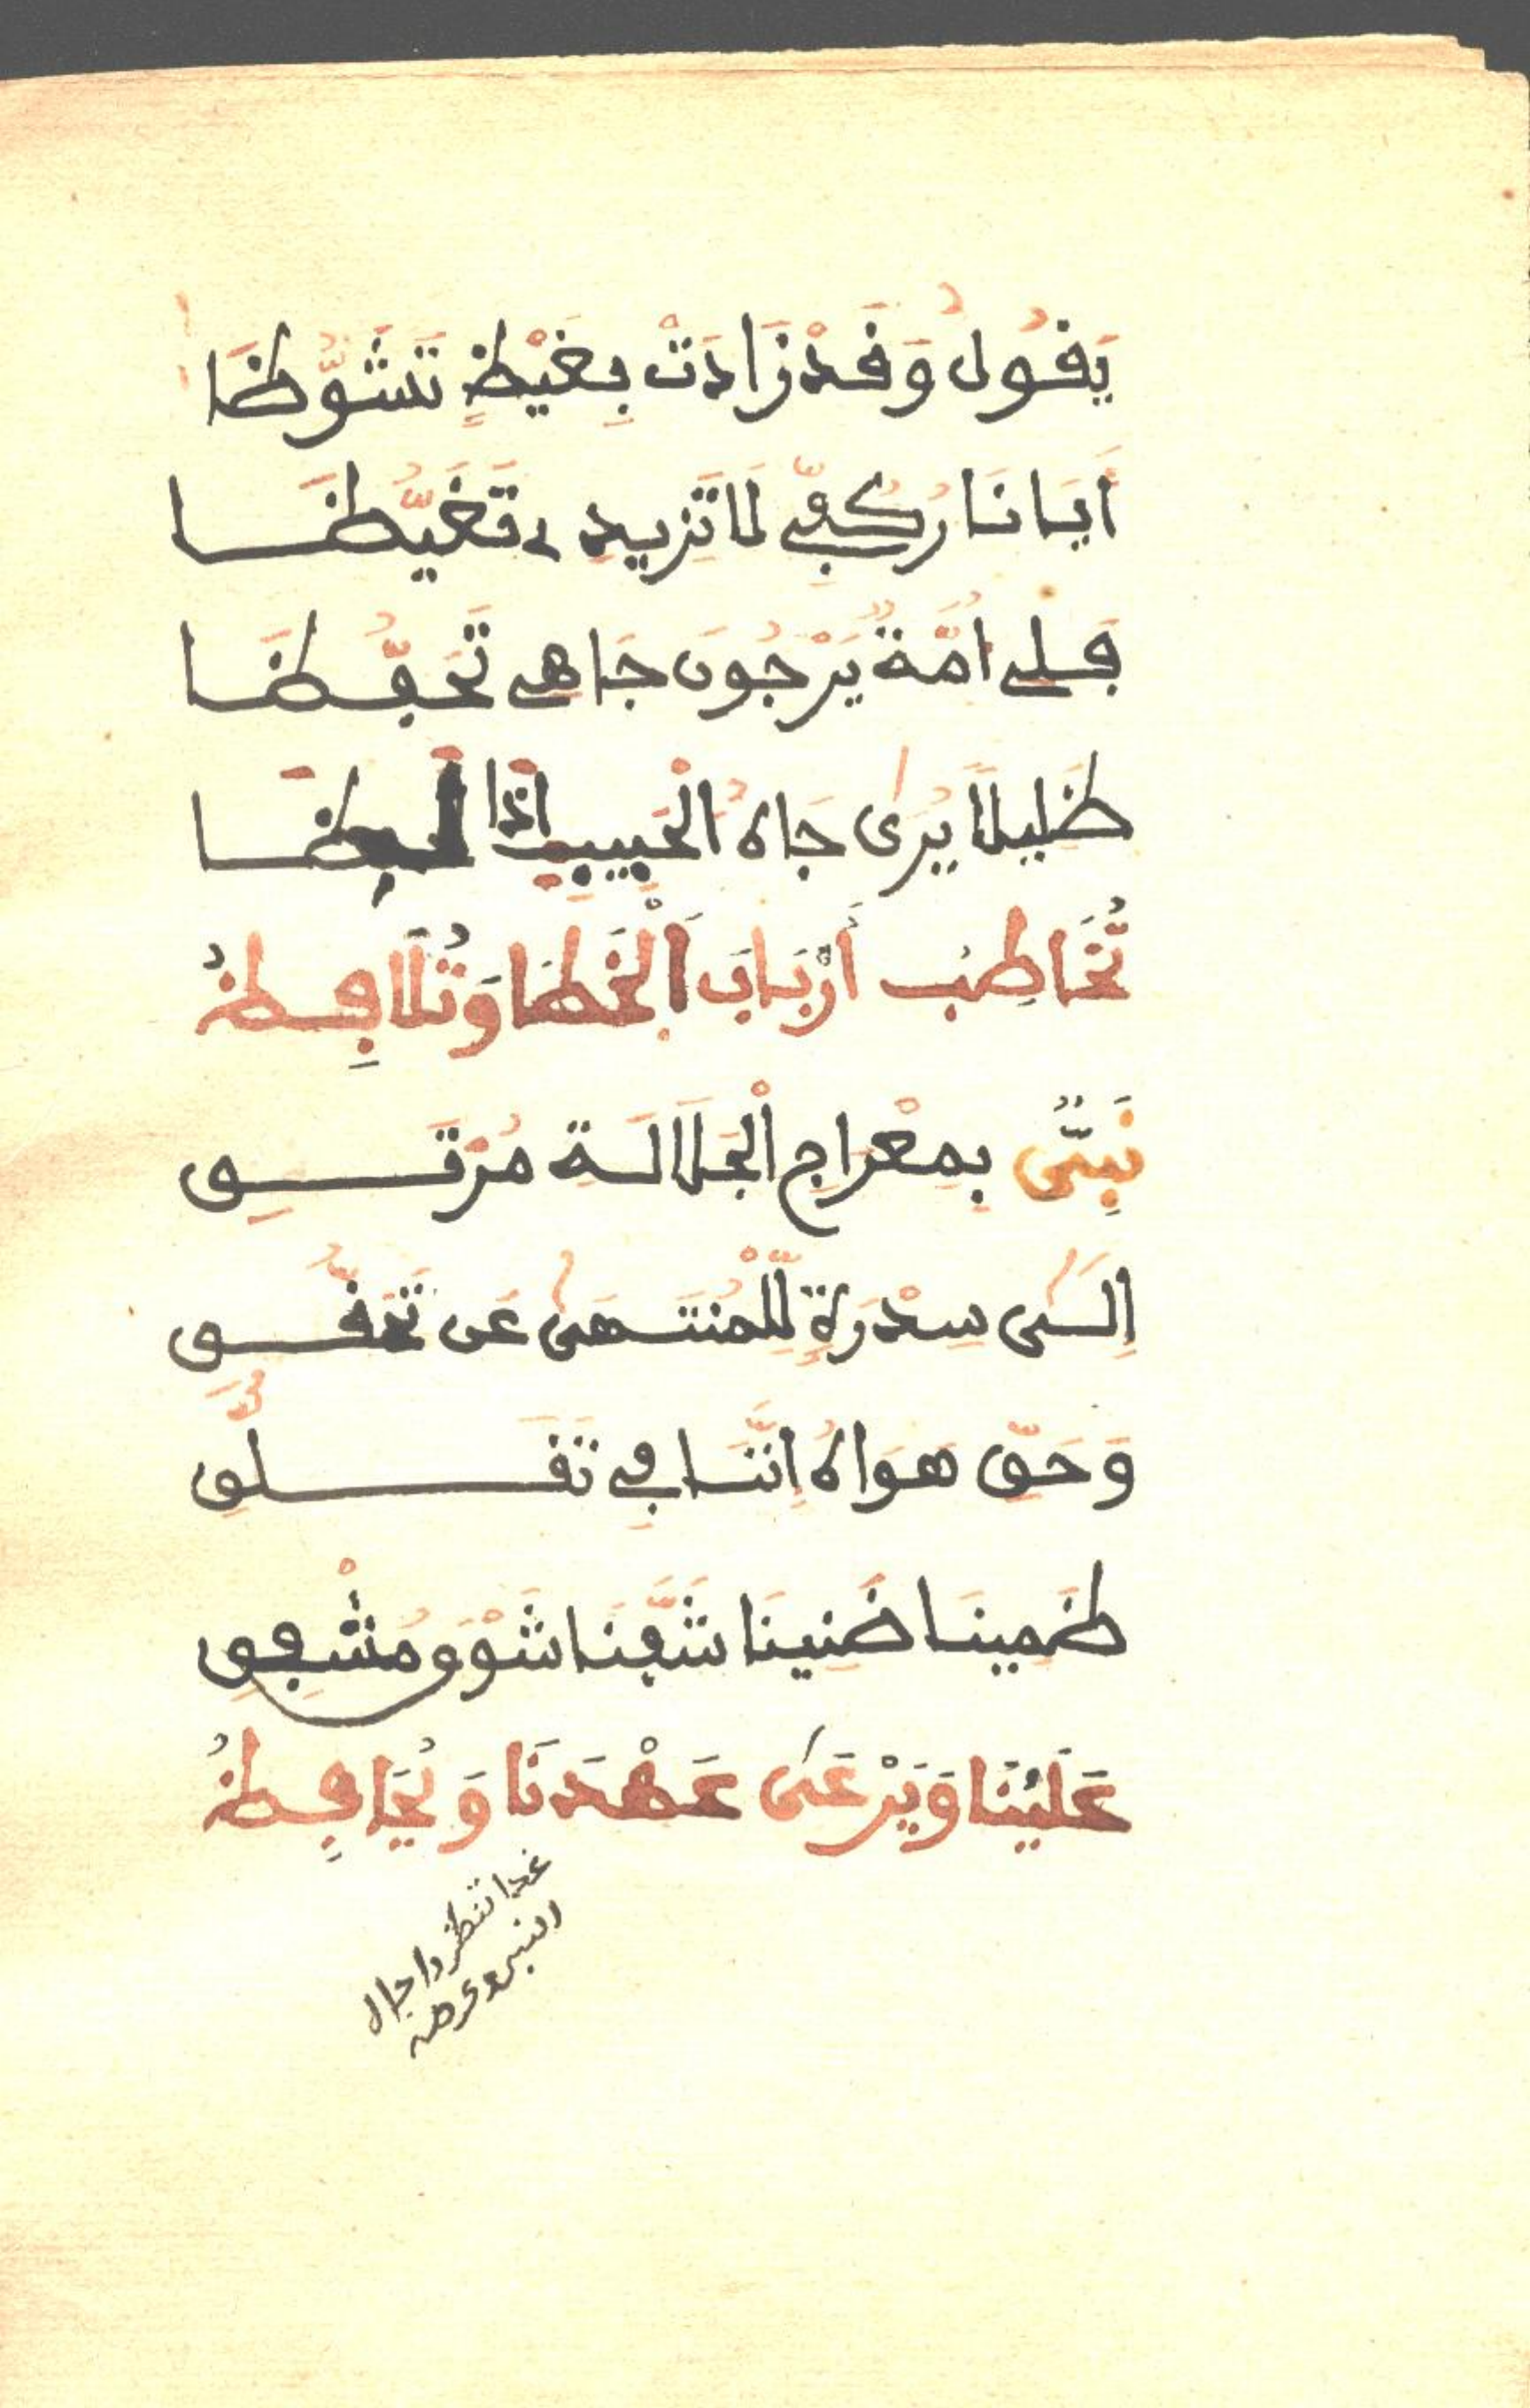 يَقُولُ وَقَدْ زَادَتْ بِغَيْظٍ تَشَوُّظَا
أَيَا نَارُ كُفِّي لَا تَزِيدِي تَغَيُّظَا
فَلِي أُمَّةٌ يَرْجُونَ جَاهِي تَحَفُّظَا
ظَلِيلًا يُرَى جَاهُ الْحَبِيبِ إِذَا
تُخَاطِبُ أَرْبَابَ الْخَطَا وَتُلَافِظُهُ
نَبِيٌّ بِمِعْرَاجِ الْجَلَالَةِ مُرْتَقِي
إِلَى سِدْرَةٍ لِلْمُنْتَهَى عَن تَحَقُّقِ
وَحَقِّ هَوَاهُ إِنَّنَا فِي تَقَلُّقِ
ظَمِينَا ضَنِينَا شَفَّنَا شَوْقُ مُشْفِقِ
عَلَيْنَا وَيَرْعَى عَهْدَنَا وَيُحَافِظُهُ
غدا تنظروا جال